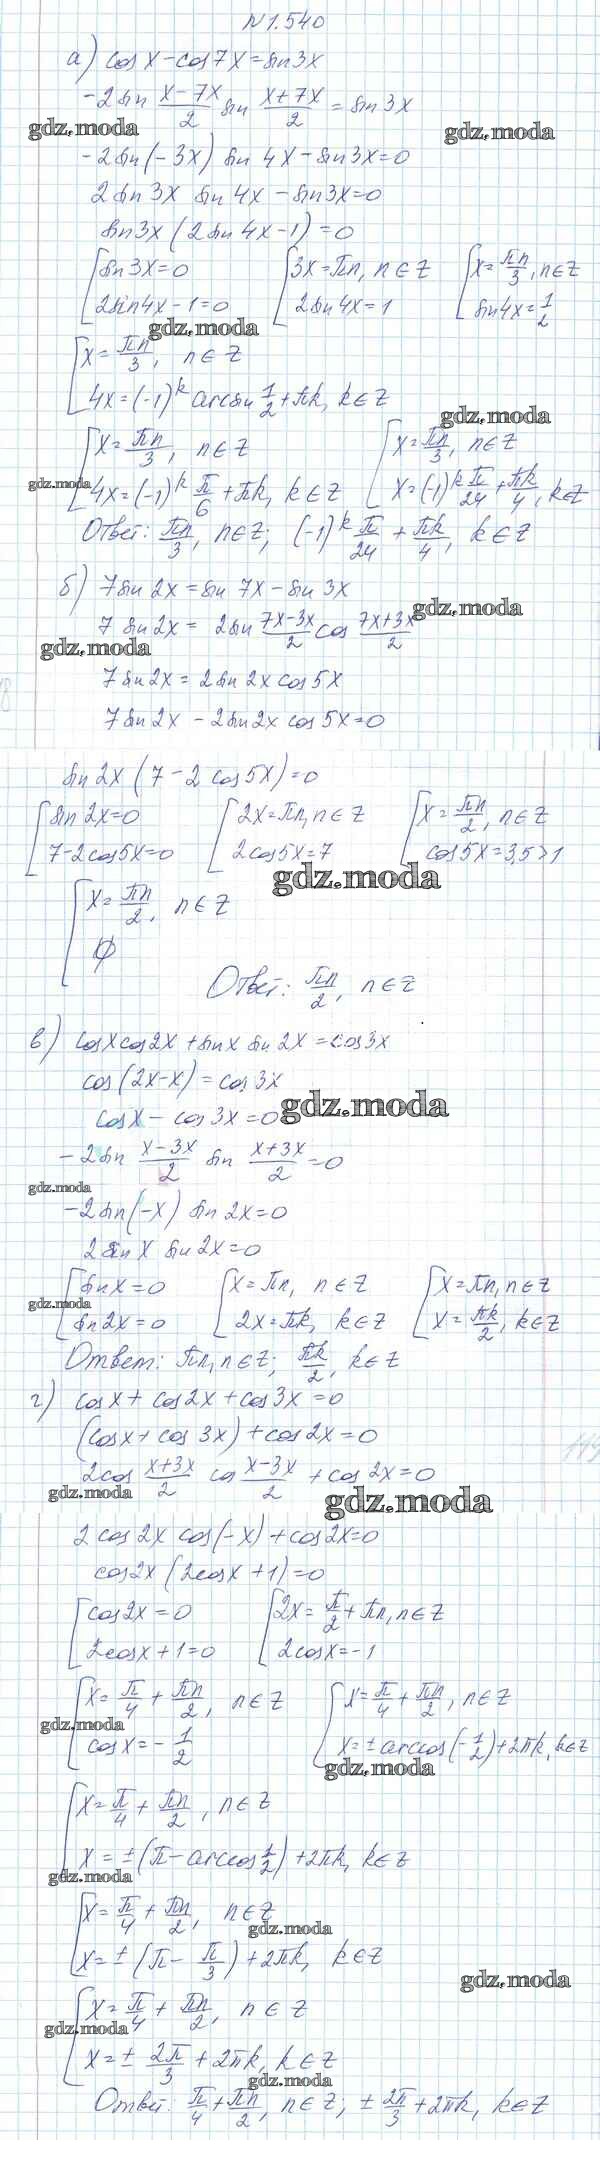 №1.540
а) cos x – cos 7x = sin 3x
-2 sin (x-7x)/2 sin (x+7x)/2 = sin 3x
gdz.moda gdz.moda
-2 sin(-3x) sin 4x - sin 3x = 0
2 sin 3x sin 4x - sin 3x = 0
sin 3x (2 sin 4x - 1) = 0
[ sin 3x = 0 [ 3x = πn, n∈Z [ x = πn/3, n∈Z
2 sin 4x - 1 = 0 2 sin 4x = 1 sin 4x = 1/2
gdz.moda
[ x = πn/3, n∈Z
4x = (-1)^k arcsin 1/2 + πk, k∈Z
gdz.moda
[ x = πn/3, n∈Z [ x = πn/3, n∈Z
gdz.moda
4x = (-1)^k π/6 + πk, k∈Z x = (-1)^k π/24 + πk/4, k∈Z
Ответ: πn/3, n∈Z; (-1)^k π/24 + πk/4, k∈Z
б) 7 sin 2x = sin 7x - sin 3x
gdz.moda
7 sin 2x = 2 sin (7x-3x)/2 cos (7x+3x)/2
gdz.moda
7 sin 2x = 2 sin 2x cos 5x
7 sin 2x - 2 sin 2x cos 5x = 0
sin 2x (7 - 2 cos 5x) = 0
[ sin 2x = 0 [ 2x = πn, n∈Z [ x = πn/2, n∈Z
7 - 2 cos 5x = 0 2 cos 5x = 7 cos 5x = 3,5 > 1
gdz.moda
[ x = πn/2, n∈Z
∅
Ответ: πn/2, n∈Z
в) cos x cos 2x + sin x sin 2x = cos 3x
cos(2x-x) = cos 3x
cos x - cos 3x = 0
gdz.moda
-2 sin (x-3x)/2 sin (x+3x)/2 = 0
gdz.moda
-2 sin(-x) sin 2x = 0
2 sin x sin 2x = 0
[ sin x = 0 [ x = πn, n∈Z [ x = πn, n∈Z
gdz.moda
sin 2x = 0 2x = πk, k∈Z x = πk/2, k∈Z
Ответ: πn, n∈Z; πk/2, k∈Z
г) cos x + cos 2x + cos 3x = 0
(cos x + cos 3x) + cos 2x = 0
2 cos (x+3x)/2 cos (x-3x)/2 + cos 2x = 0
gdz.moda gdz.moda
2 cos 2x cos(-x) + cos 2x = 0
cos 2x (2 cos x + 1) = 0
[ cos 2x = 0 [ 2x = π/2 + πn, n∈Z
2 cos x + 1 = 0 2 cos x = -1
[ x = π/4 + πn/2, n∈Z [ x = π/4 + πn/2, n∈Z
gdz.moda
cos x = -1/2 x = ± arccos(-1/2) + 2πk, k∈Z
gdz.moda
[ x = π/4 + πn/2, n∈Z
x = ±(π - arccos 1/2) + 2πk, k∈Z
gdz.moda
[ x = π/4 + πn/2, n∈Z
gdz.moda
x = ±(π - π/3) + 2πk, k∈Z
gdz.moda
[ x = π/4 + πn/2, n∈Z
gdz.moda
x = ± 2π/3 + 2πk, k∈Z
gdz.moda
Ответ: π/4 + πn/2, n∈Z; ± 2π/3 + 2πk, k∈Z